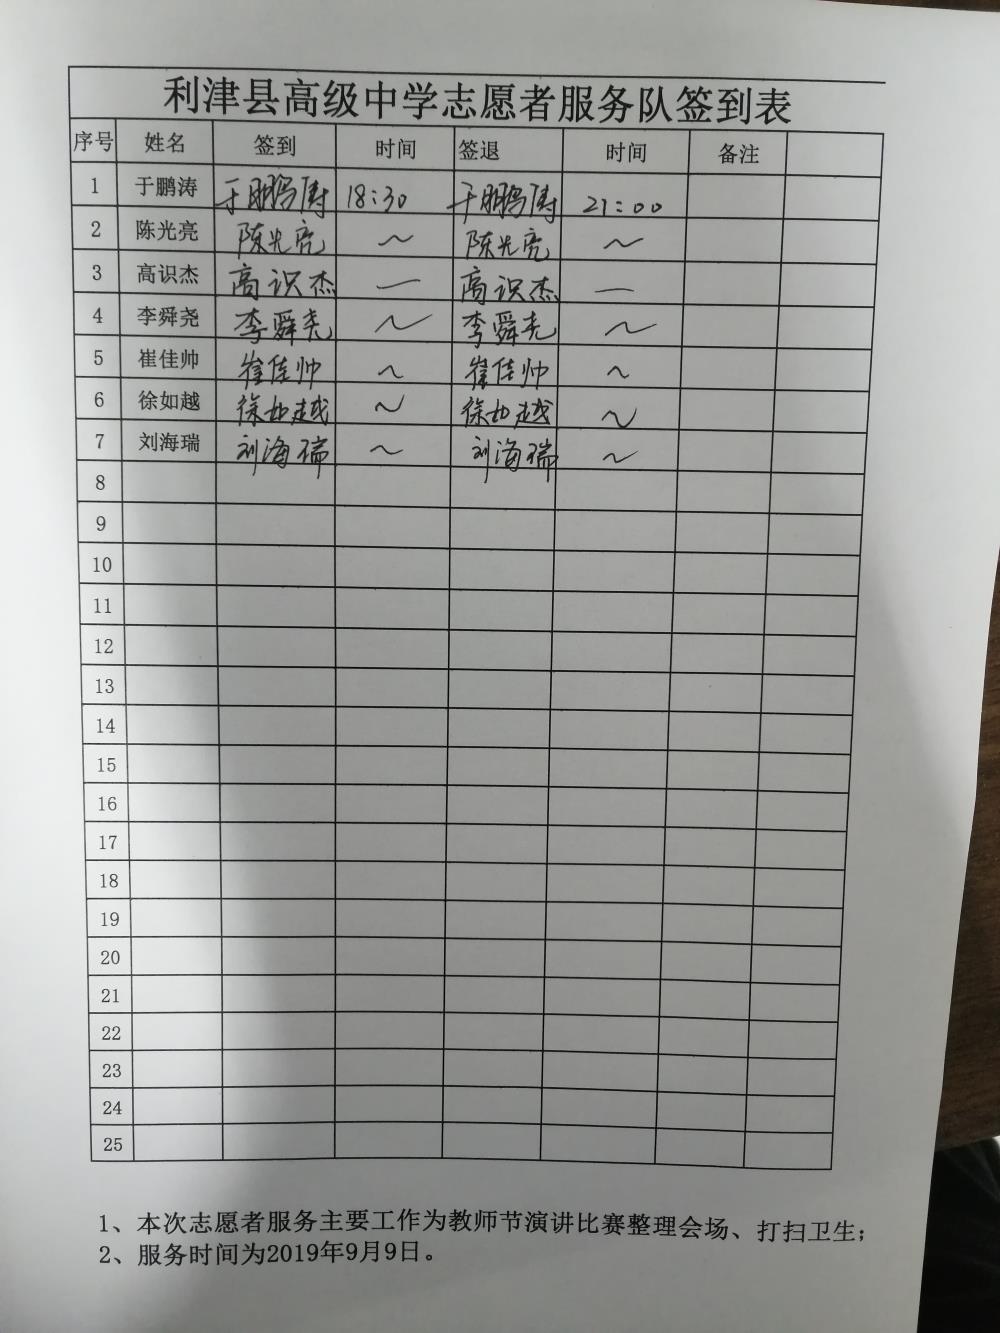 利津县高级中学志愿者服务队签到表
序号 姓名 签到 时间 签退 时间 备注
1 于鹏涛 于鹏涛 18:30 于鹏涛 21:00
2 陈光亮 陈光亮 ~ 陈光亮 ~
3 高识杰 高识杰 — 高识杰 —
4 李舜尧 李舜尧 ~ 李舜尧 ~
5 崔佳帅 崔佳帅 ~ 崔佳帅 ~
6 徐如越 徐如越 ~ 徐如越 ~
7 刘海瑞 刘海瑞 ~ 刘海瑞 ~
8
9
10
11
12
13
14
15
16
17
18
19
20
21
22
23
24
25
1、本次志愿者服务主要工作为教师节演讲比赛整理会场、打扫卫生；
2、服务时间为2019年9月9日。